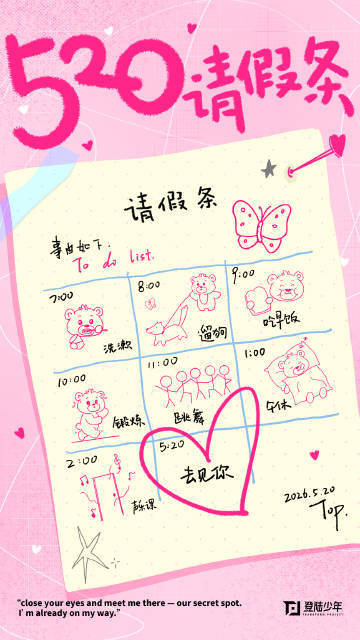 520请假条
请假条
事由如下:
To do list.
7:00
洗漱
8:00
遛狗
9:00
吃早饭
10:00
锻炼
11:00
跳舞
1:00
午休
2:00
声乐课
5:20
去见你
2026.5.20
Top.
"close your eyes and meet me there — our secret spot.
I' m already on my way."
登陆少年
TRANSFORM PROJECT